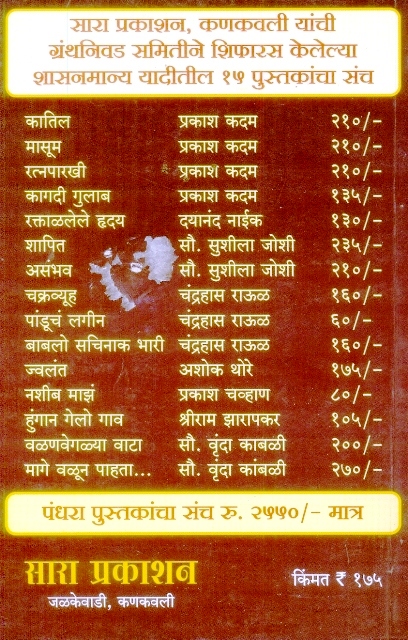 सारा प्रकाशन, कणकवली यांची
ग्रंथनिवड समितीने शिफारस केलेल्या
शासनमान्य यादीतील १५ पुस्तकांचा संच
कातिल प्रकाश कदम २१०/-
मासूम प्रकाश कदम २१०/-
रत्नपारखी प्रकाश कदम २१०/-
कागदी गुलाब प्रकाश कदम १३५/-
रक्ताळलेले हृदय दयानंद नाईक १३०/-
शापित सौ. सुशीला जोशी २३५/-
असंभव सौ. सुशीला जोशी २१०/-
चक्रव्यूह चंद्रहास राऊळ १६०/-
पांडूचं लगीन चंद्रहास राऊळ ६०/-
बाबलो सचिनाक भारी चंद्रहास राऊळ १६०/-
ज्वलंत अशोक थोरे १७५/-
नशीब माझं प्रकाश चव्हाण ८०/-
हुंगान गेलो गाव श्रीराम झारापकर १०५/-
वळणवेगळ्या वाटा सौ. वृंदा कांबळी २००/-
मागे वळून पाहता... सौ. वृंदा कांबळी २७०/-
पंधरा पुस्तकांचा संच रु. २५५०/- मात्र
सारा प्रकाशन
जळकेवाडी, कणकवली
किंमत ₹ १७५